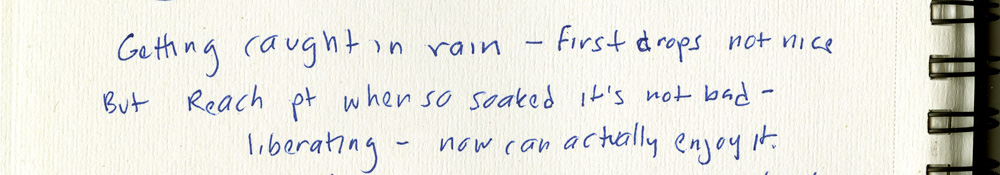 Getting caught in rain – first drops not nice
But Reach pt when so soaked it's not bad –
liberating – now can actually enjoy it.